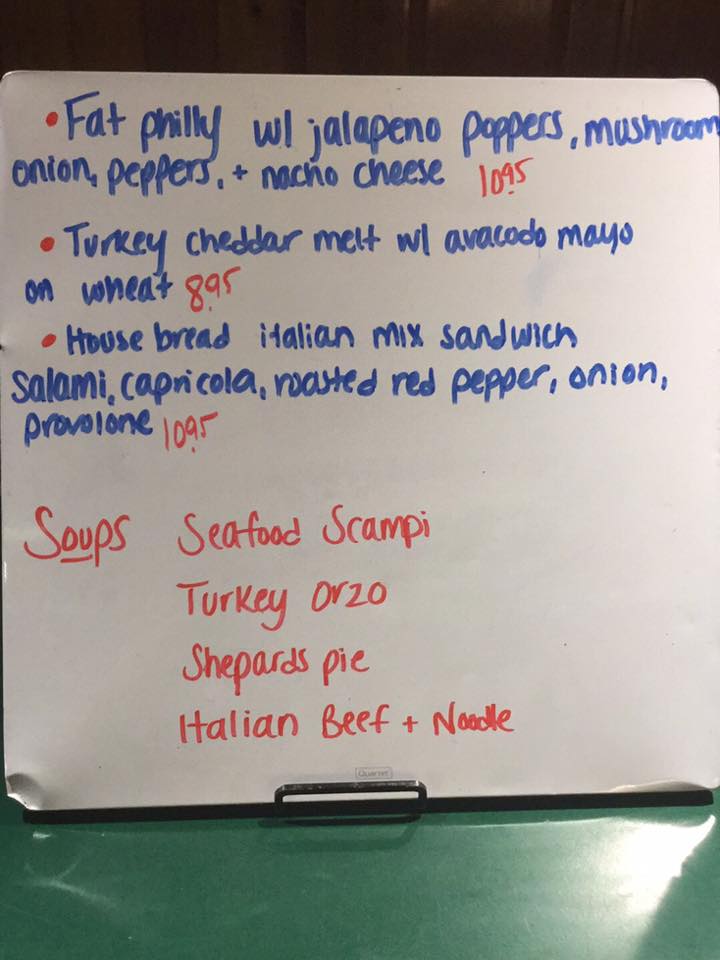 • Fat philly w/ jalapeno poppers, mushroom
onion, peppers, + nacho cheese 10.95
• Turkey cheddar melt w/ avacodo mayo
on wheat 8.95
• House bread italian mix sandwich
Salami, capricola, roasted red pepper, onion,
provolone 10.95
Soups Seafood Scampi
Turkey Orzo
Shepards pie
Italian Beef + Noodle
Quartet